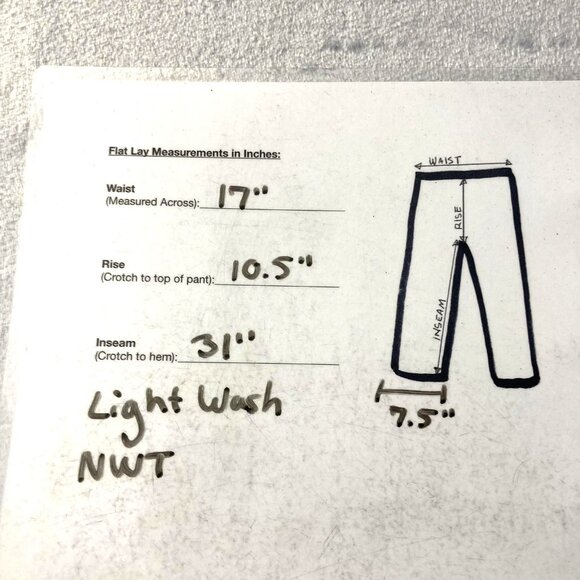 Flat Lay Measurements in Inches:
WAIST
Waist
(Measured Across): 17"
RISE
Rise
(Crotch to top of pant): 10.5"
INSEAM
Inseam
(Crotch to hem): 31"
7.5"
Light Wash
NWT